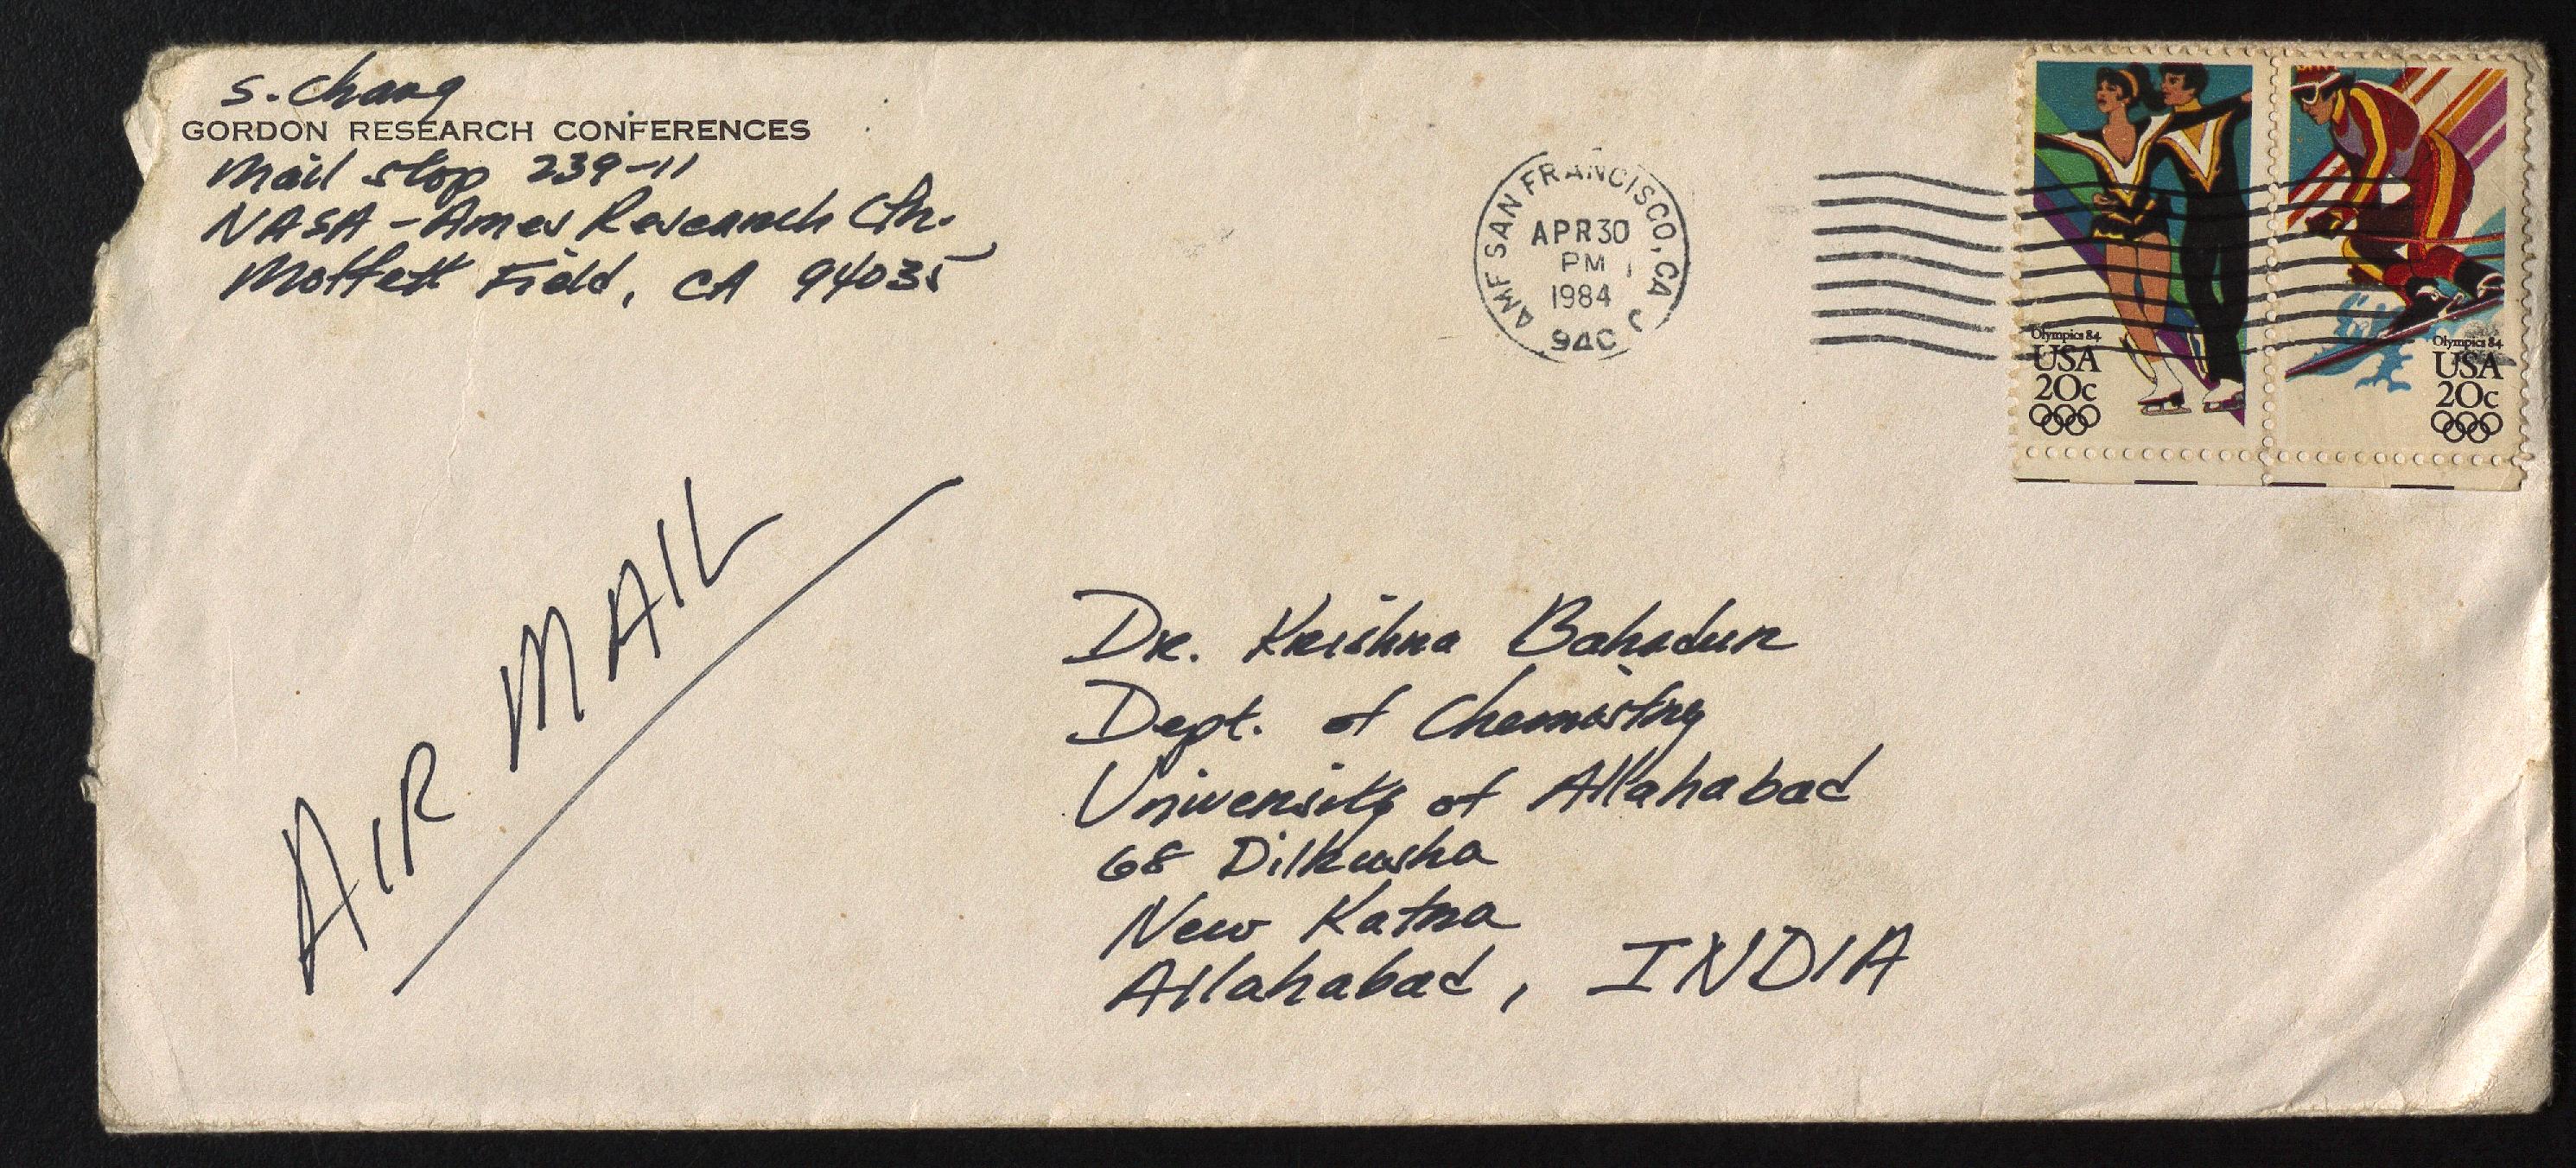 S. Chang
GORDON RESEARCH CONFERENCES
Mail Stop 239-11
NASA - Ames Research Ctr.
Moffett Field, CA 94035
AMF SAN FRANCISCO, CA
APR 30
PM
1984
940
Olympics 84
USA
20c
Olympics 84
USA
20c
AIR MAIL
Dr. Krishna Bahadur
Dept. of Chemistry
University of Allahabad
68 Dilkusha
New Katra
Allahabad, INDIA